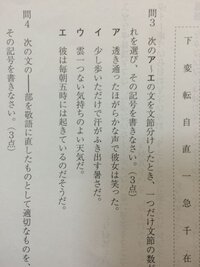 下 変 転 自 直 一 急 千 在
問3 次のア～エの文を文節分けしたとき、一つだけ文節の数が
れを選び、その記号を書きなさい。(3点)
ア 透き通ったほがらかな声で彼女は笑った。
イ 少し歩いただけで汗がふき出す暑さだ。
ウ 雲一つない気持ちのよい天気だ。
エ 彼は毎朝五時には起きているのだそうだ。
問4 次の文の―――部を敬語に直したものとして適切なものを、
その記号を書きなさい。(3点)